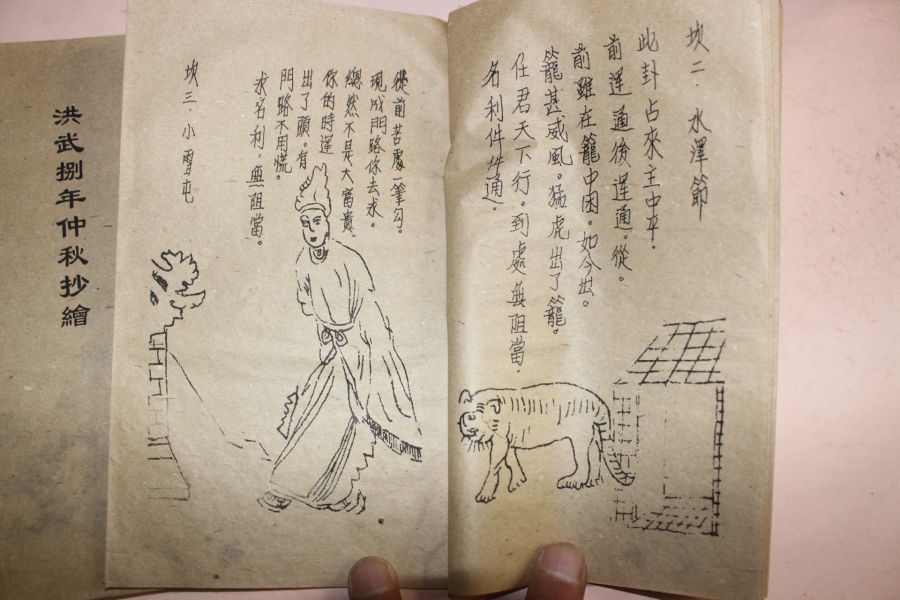 坎二.水澤節
此卦占來主中平.
前運通後運通。從
前雖在籠中困。如今出。
籠甚威風。猛虎出了籠。
任君天下行。到處無阻當.
名利件件通。
從前苦處一筆勾。
現成門路你去求。
總然不是大富貴.
你的時運
出了頭。有
門路不用慌。
求名利,無阻當。
坎三.小雪屯
洪武捌年仲秋抄繪